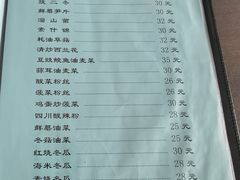 烧二冬 30元
鲜蘑笋片 30元
溜山菌 32元
素什锦 30元
蚝油草菇 32元
清炒西兰花 32元
豆豉鲮鱼油麦菜 35元
蒜茸油麦菜 30元
酸菜粉丝 28元
菠菜粉丝 28元
鸡蛋炒菠菜 30元
四川酸辣粉 28元
鲜蘑油菜 25元
冬菇油菜 25元
红烧冬瓜 30元
海米冬瓜 28元
素烧冬瓜 28